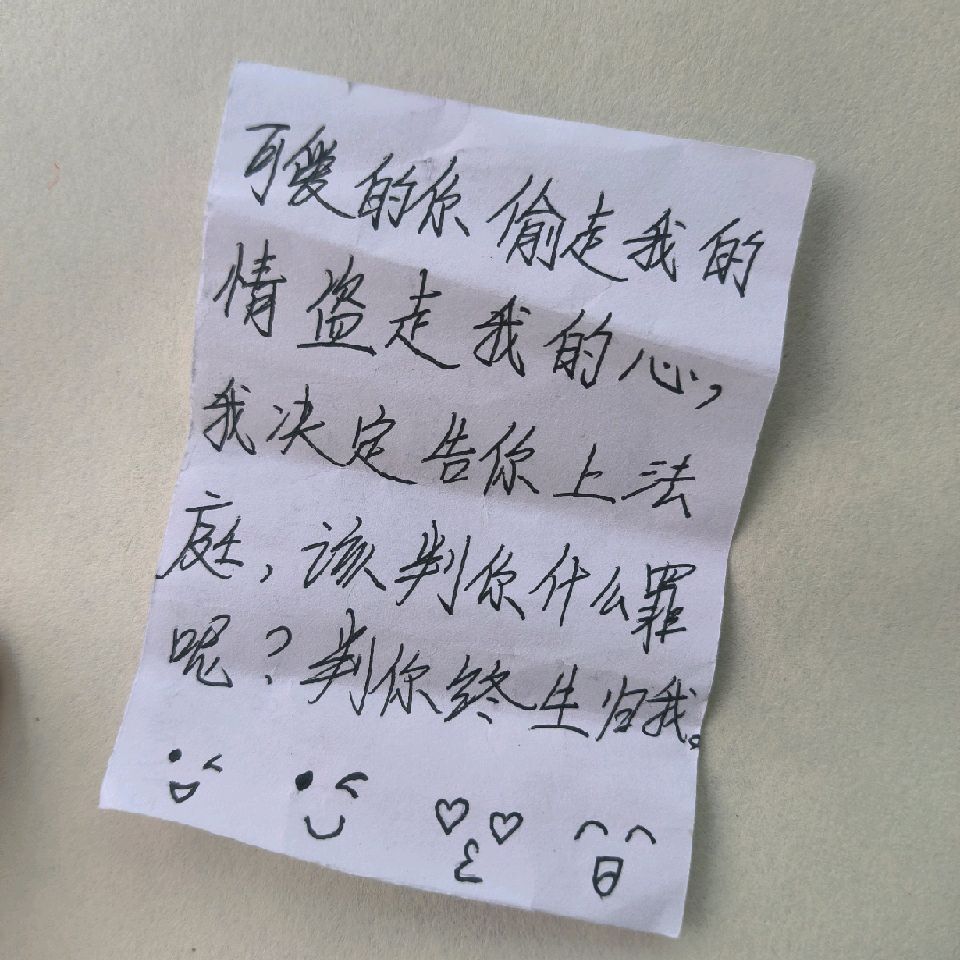 可爱的你偷走我的
情盗走我的心,
我决定告你上法
庭,该判你什么罪
呢?判你终生归我。